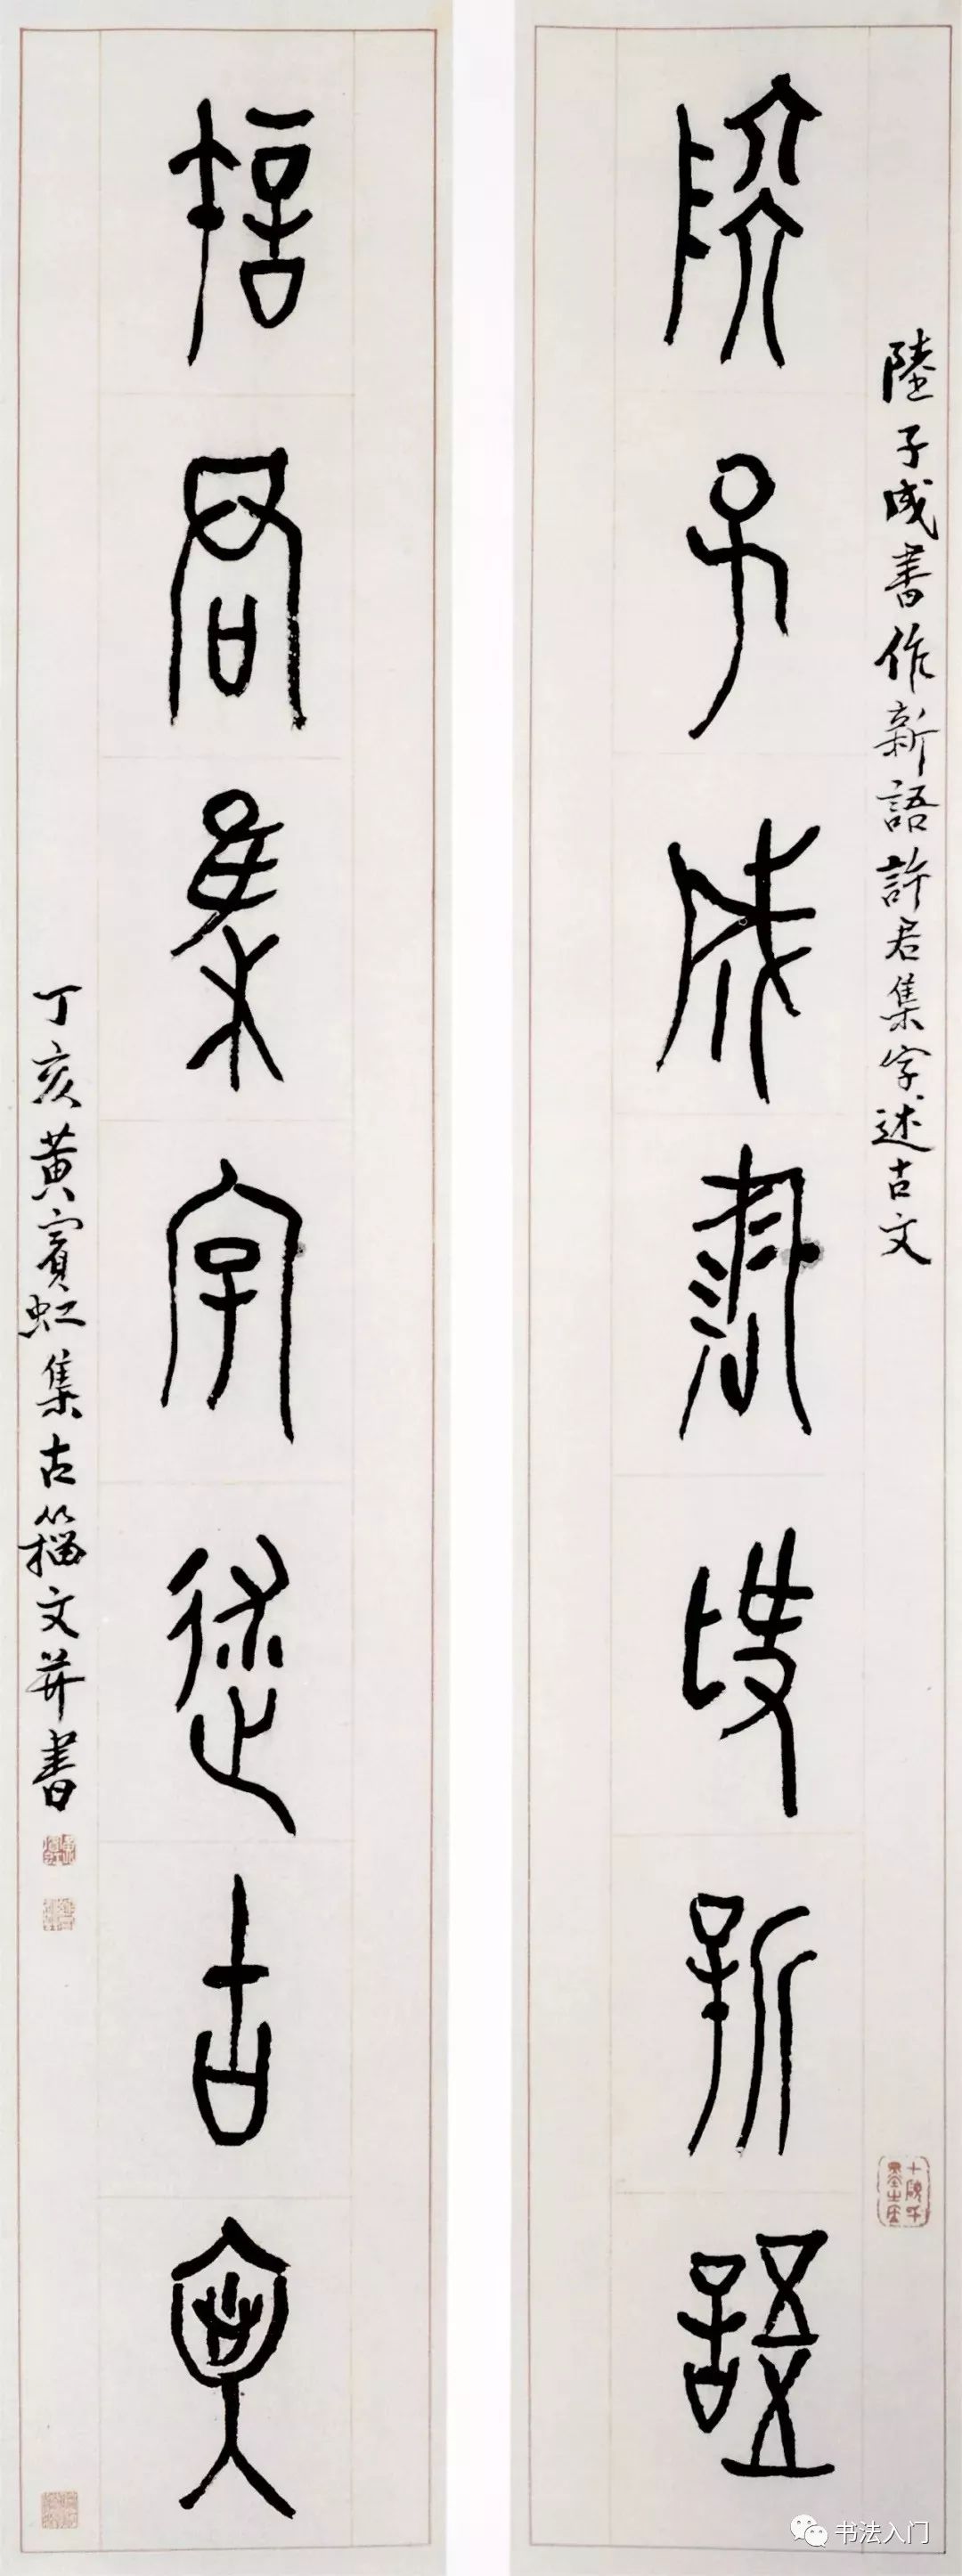 陸子成書作新語
陸子成書作新語許君集字述古文
許君集字述古文
丁亥黄賓虹集古籀文并書
书法入门